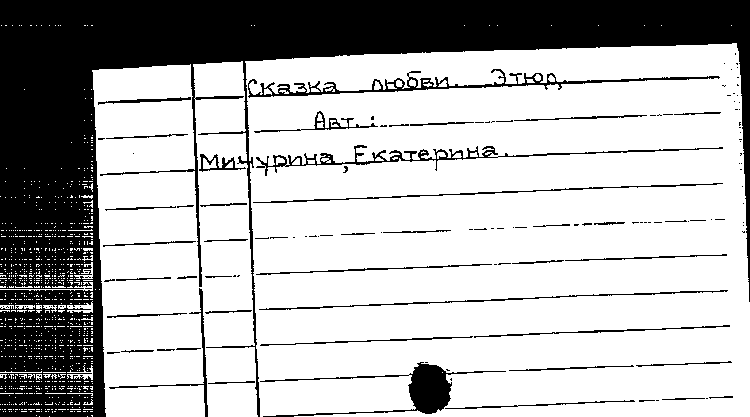 Сказка любви. Этюд.
Авт.:
Мичурина, Екатерина.